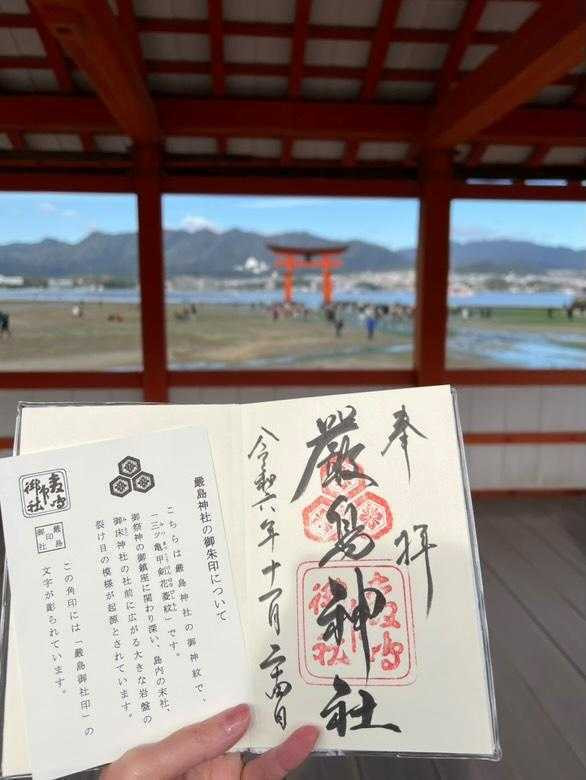 奉拝
厳島神社
令和六年十一月二十四日
厳島神社の御朱印について
こちらは厳島神社の御神紋で、
「三ツ亀甲剣花菱紋」です。
御祭神の御鎮座に関わり深い、島内の末社、
御床神社の社前に広がる大きな岩盤の
裂け目の模様が起源とされています。
厳島
御社
この角印には「厳島御社印」の
文字が彫られています。